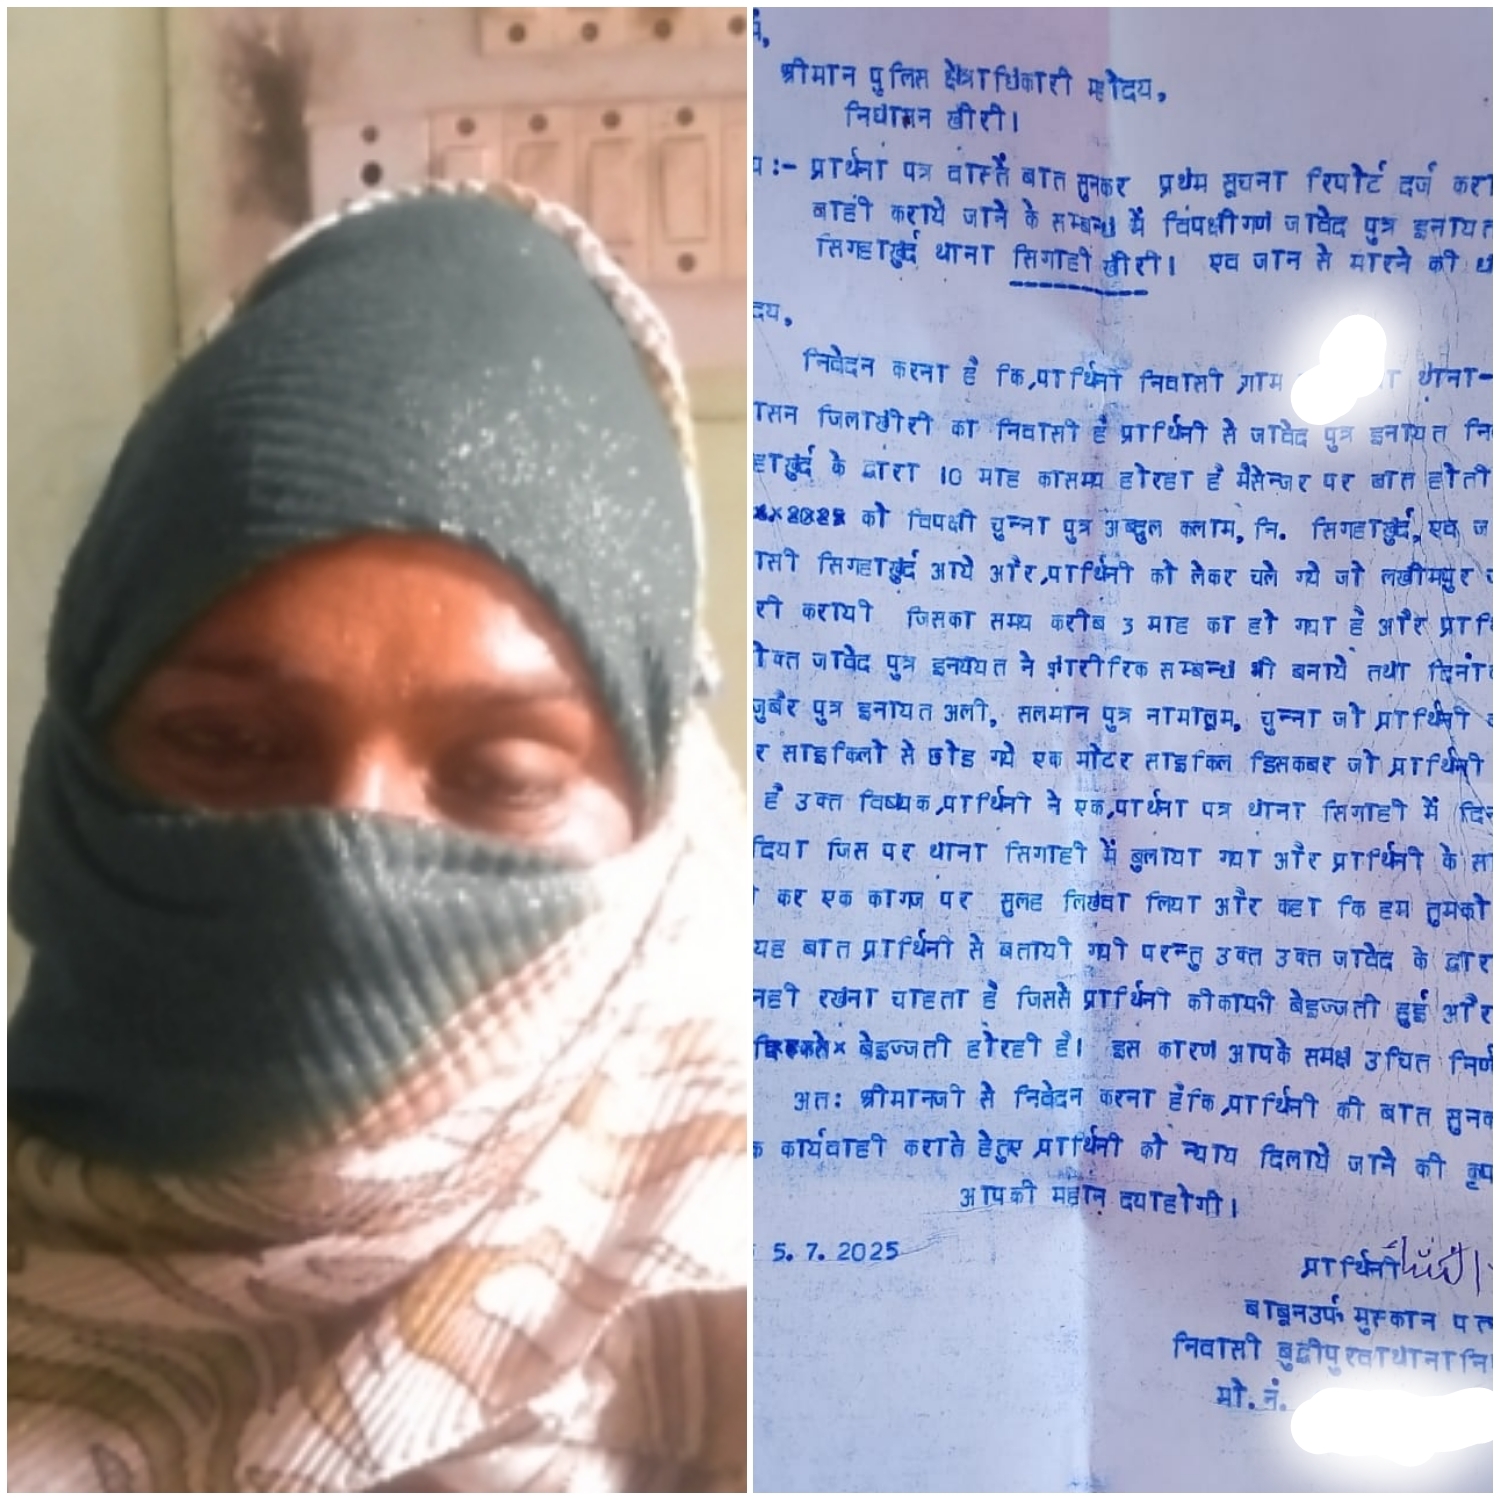 श्रीमान पुलिस क्षेत्राधिकारी महोदय,
निघासन खीरी।
:- प्रार्थना पत्र वास्ते बात सुनकर प्रथम सूचना रिपोर्ट दर्ज
कराये जाने के सम्बन्ध में विपक्षीगण जावेद पुत्र इनायत
सिगहाखुर्द थाना सिगाही खीरी। एव जान से मारने की
निवेदन करना है कि,प्रार्थिनी निवासी ग्राम थाना-
जिलाखीरी का निवासी है प्रार्थिनी से जावेद पुत्र इनायत
के द्वारा 10 माह कासमय होरहा है मैसेन्जर पर बात होती
को विपक्षी चुन्ना पुत्र अब्दुल कलाम, नि. सिगहाखुर्द, एव
सिगहाखुर्द आये और,प्रार्थिनी को लेकर चले गये जो लखीमपुर
करायी जिसका समय करीब 3 माह का हो गया है और
जावेद पुत्र इनययत ने शारीरिक सम्बन्ध भी बनाये तथा
जुबैर पुत्र इनायत अली, सलमान पुत्र नामालूम, चुन्ना जो प्रार्थिनी
साइकिलो से छोड गये एक मोटर साइकिल डिसकबर जो प्रार्थिनी
है उक्त विषयक,प्रार्थिनी ने एक,प्रार्थना पत्र थाना सिगाही में
दिया जिस पर थाना सिगाही में बुलाया गया और प्रार्थिनी के
कर एक कागज पर सुलह लिखवा लिया और कहा कि हम तुमको
यह बात प्रार्थिनी से बतायी गयी परन्तु उक्त उक्त जावेद के
नही रखना चाहता है जिससे प्रार्थिनी कीकाफी बेइज्जती हुई और
बेइज्जती होरही है। इस कारण आपके समक्ष उचित
अत: श्रीमानजी से निवेदन करना हैकि,प्रार्थिनी की बात
कार्यवाही कराते हेतुए प्रार्थिनी को न्याय दिलाये जाने की
आपकी महान दयाहोगी।
5.7.2025
प्रार्थिनी
बाबूनउर्फ मुस्कान
निवासी बुद्धीपुरवाथाना
मो. नं.